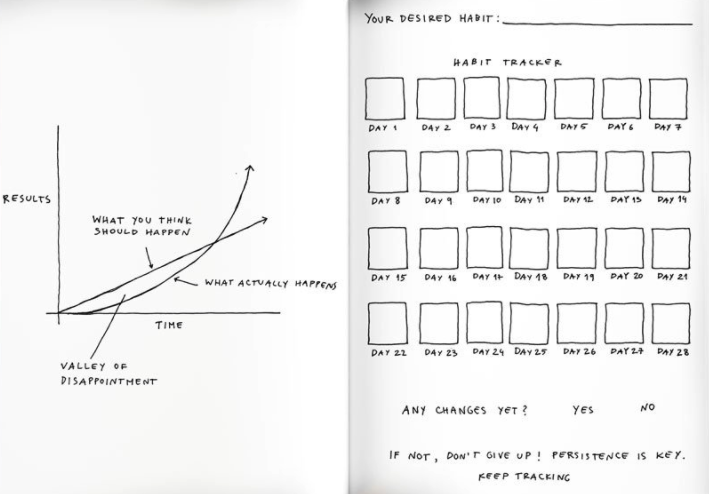 RESULTS
WHAT YOU THINK
SHOULD HAPPEN
WHAT ACTUALLY HAPPENS
TIME
VALLEY OF
DISAPPOINTMENT
YOUR DESIRED HABIT:
HABIT TRACKER
DAY 1 DAY 2 DAY 3 DAY 4 DAY 5 DAY 6 DAY 7
DAY 8 DAY 9 DAY 10 DAY 11 DAY 12 DAY 13 DAY 14
DAY 15 DAY 16 DAY 17 DAY 18 DAY 19 DAY 20 DAY 21
DAY 22 DAY 23 DAY 24 DAY 25 DAY 26 DAY 27 DAY 28
ANY CHANGES YET? YES NO
IF NOT, DON'T GIVE UP! PERSISTENCE IS KEY.
KEEP TRACKING